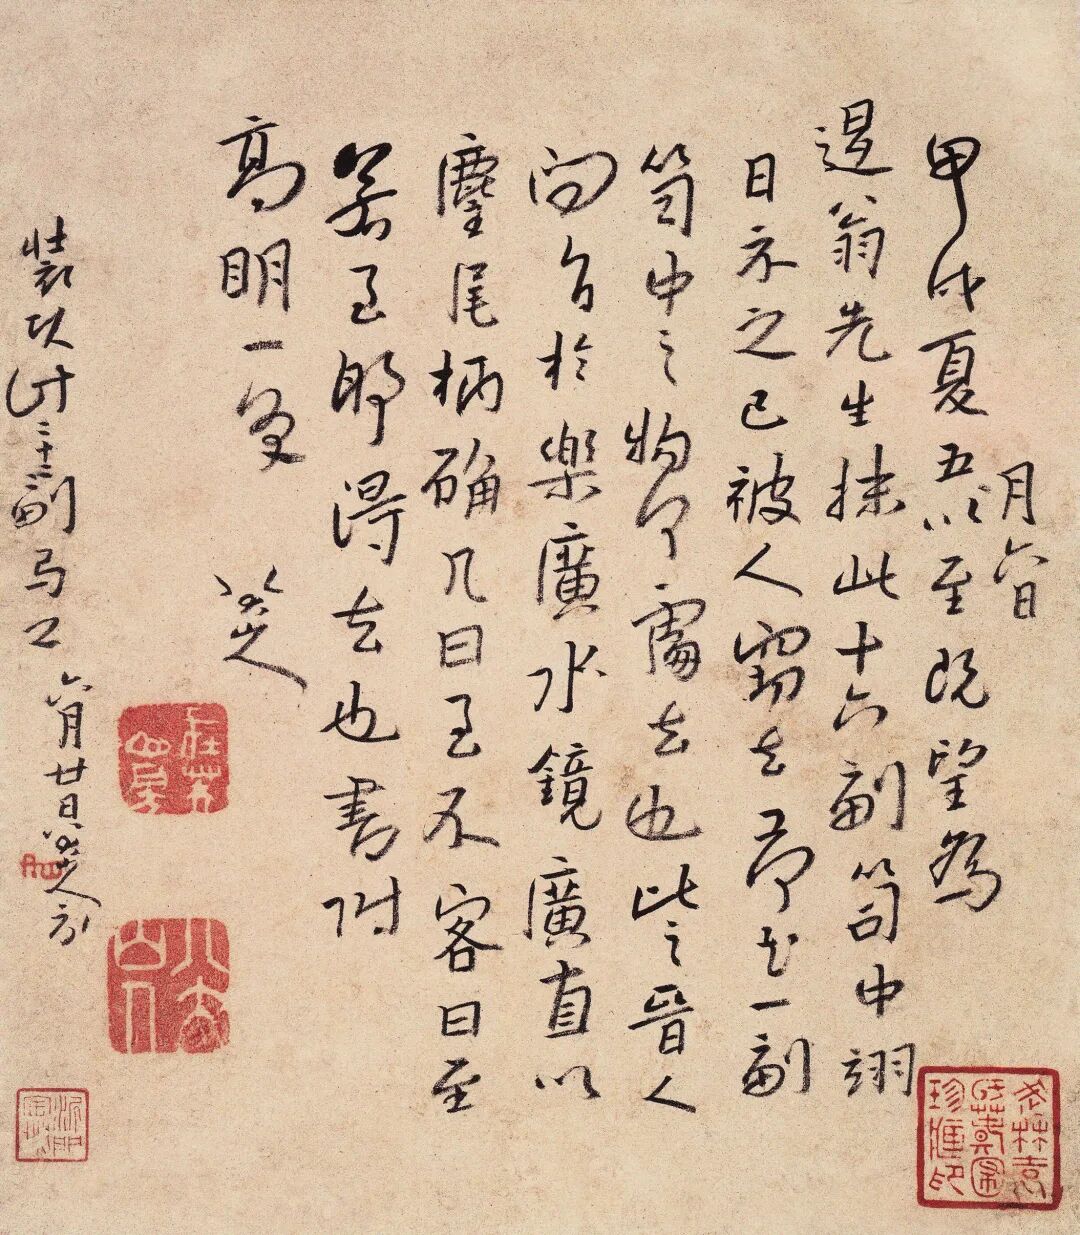 月六日
甲戌夏五以至既望爲
退翁先生抹此十六副笥中翊
日示之已被人竊去一副
笥中之物何處去也此之晉人
问旨於樂廣水鏡廣直以
麈尾柄确几曰至不客曰至
若至那得去也書附
高明一笑
八大山人
裝次計二十二副
六月廿日八大山人